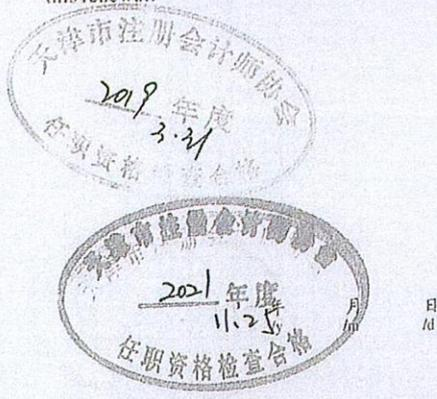 天津市注册会计师协会
2019 年度
3.31
任职资格检查合格
天津市注册会计师协会
2021 年度
11.25
年 月 日
/y /m /d
任职资格检查合格